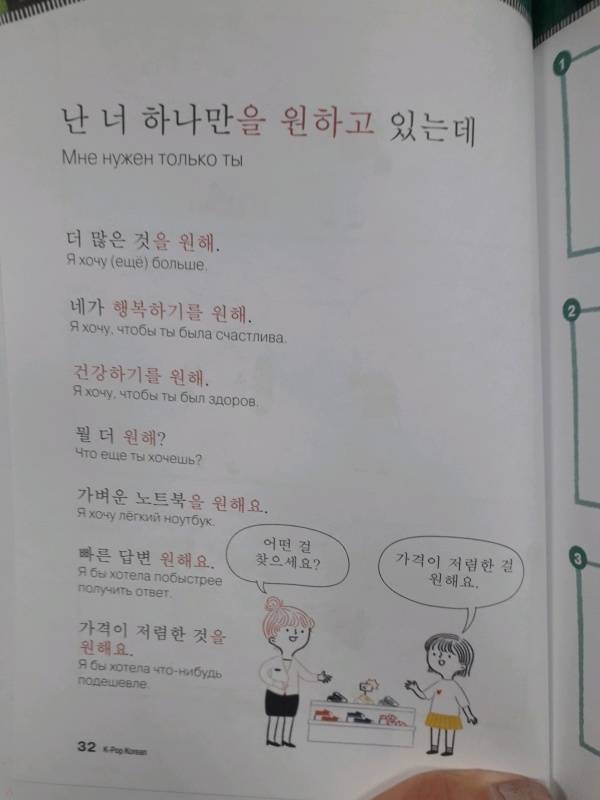 난 너 하나만을 원하고 있는데
Мне нужен только ты
더 많은 것을 원해.
Я хочу (ещё) больше.
네가 행복하기를 원해.
Я хочу, чтобы ты была счастлива.
건강하기를 원해.
Я хочу, чтобы ты был здоров.
뭘 더 원해?
Что еще ты хочешь?
가벼운 노트북을 원해요.
Я хочу лёгкий ноутбук.
빠른 답변 원해요.
Я бы хотела побыстрее
получить ответ.
가격이 저렴한 것을
원해요.
Я бы хотела что-нибудь
подешевле.
어떤 걸
찾으세요?
가격이 저렴한 걸
원해요.
32 K-Pop Korean
1
2
3